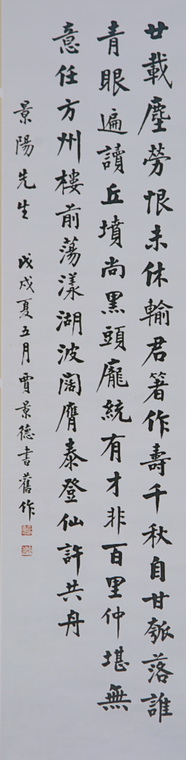 廿載塵勞恨未休輸君著作壽千秋自甘瓠落誰
青眼遍讀丘墳尚黑頭龐統有才非百里仲堪無
意任方州樓前蕩漾湖波闊膺泰登仙許共舟
景陽先生 戊戌夏五月賈景德書舊作